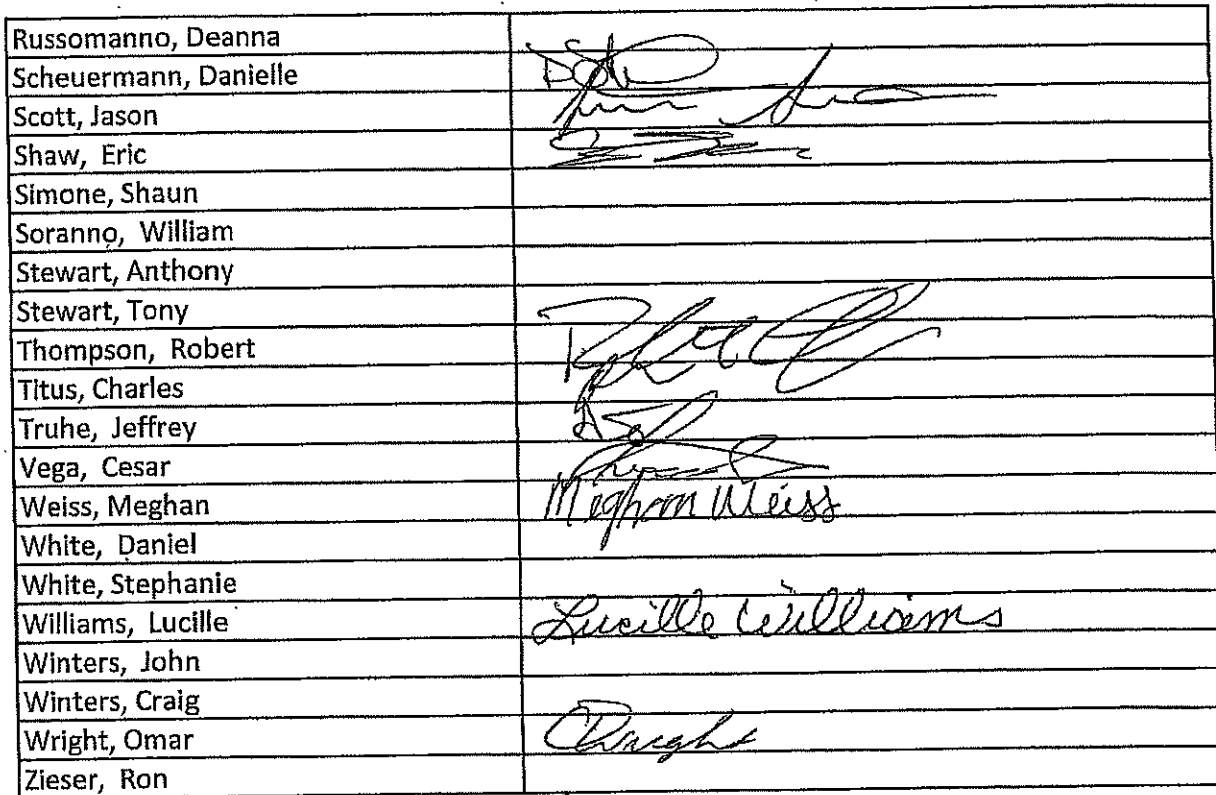 Russomanno, Deanna
Scheuermann, Danielle
Scott, Jason
Shaw, Eric
Simone, Shaun
Soranno, William
Stewart, Anthony
Stewart, Tony
Thompson, Robert
Titus, Charles
Truhe, Jeffrey
Vega, Cesar
Weiss, Meghan Meghan Weiss
White, Daniel
White, Stephanie
Williams, Lucille Lucille Williams
Winters, John
Winters, Craig
Wright, Omar OWright
Zieser, Ron